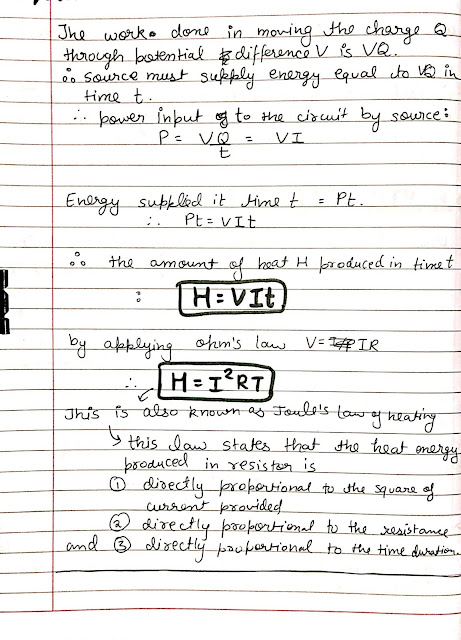 The work done in moving the charge Q
through potential difference V is VQ.
∴ source must supply energy equal to VQ in
time t.
∴ power input to the circuit by source:
P = VQ/t = VI
Energy supplied it time t = Pt.
∴ Pt = VIt
∴ the amount of heat H produced in time t
: H = VIt
by applying ohm's law V = IR
∴ H = I²RT
This is also known as Joule's law of heating
↳ this law states that the heat energy
produced in resistor is
① directly proportional to the square of
current provided
② directly proportional to the resistance
and ③ directly proportional to the time duration.